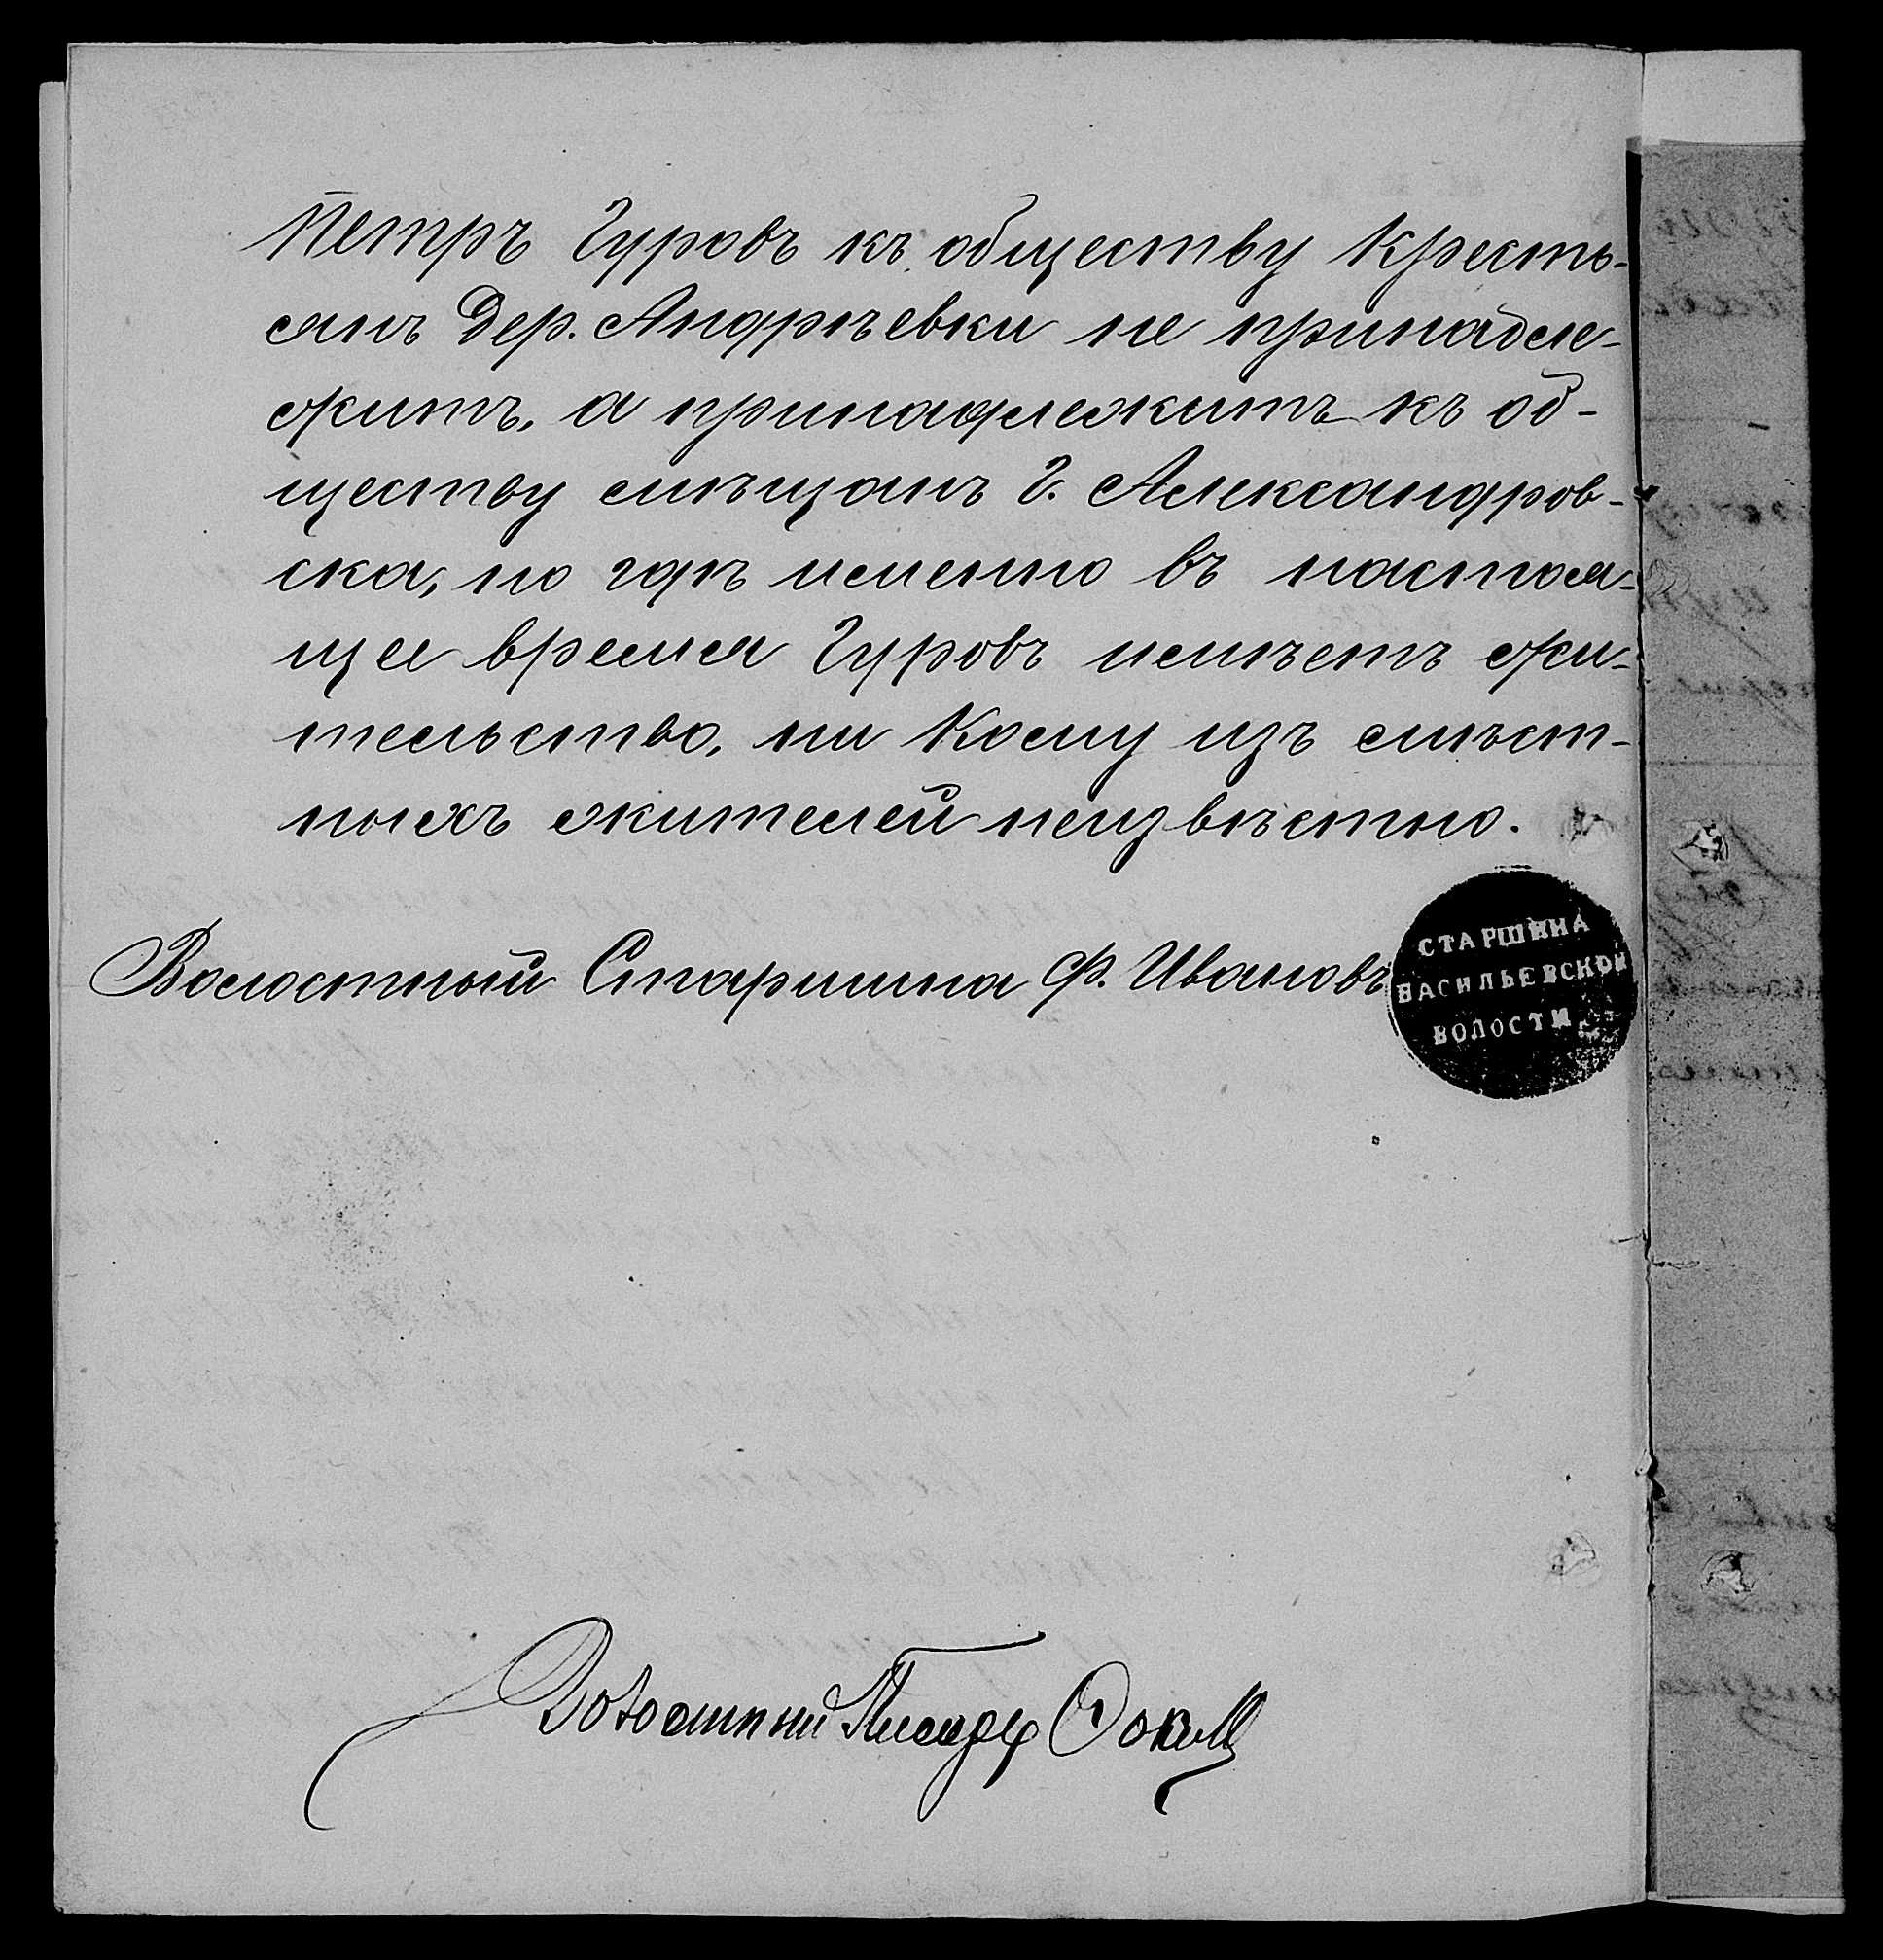 Петръ Гуровъ къ обществу Кресть-
янъ Дер. Андрѣевки не принадле-
житъ, а принадлежитъ къ об-
ществу мѣщанъ Г. Александров-
ска, но гдѣ именно въ настоя-
щее время Гуровъ имѣетъ жи-
тельство, ни Кому изъ мѣст-
ныхъ жителей неизвѣстно.
Волостный Старшина Ф. Ивановъ
СТАРШИНА
ВАСИЛЬЕВСКОЙ
ВОЛОСТИ
Волостний Писарь